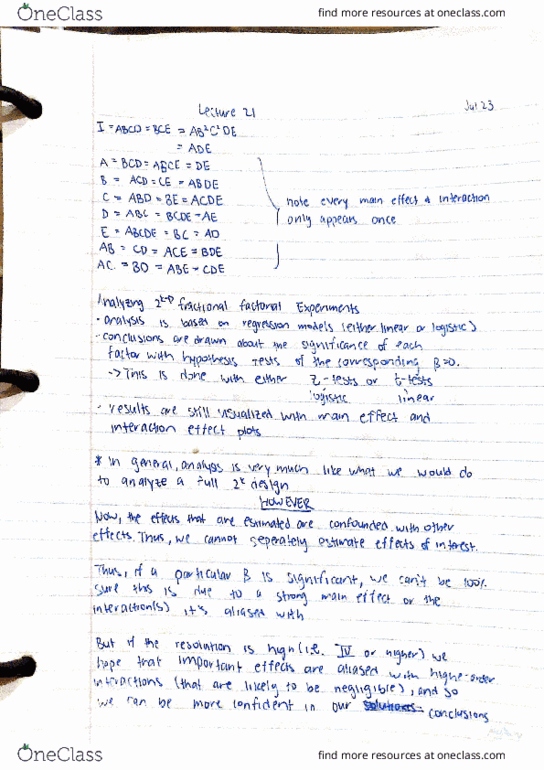 OneClass
find more resources at oneclass.com
Lecture 21
Jul 23
I = ABCD = BCE = AB²C²DE
= ADE
A = BCD = ABCE = DE
B = ACD = CE = ABDE
C = ABD = BE = ACDE
D = ABC = BCDE = AE
E = ABCDE = BC = AD
AB = CD = ACE = BDE
AC = BD = ABE = CDE
note every main effect & interaction
only appears once
Analyzing 2^k-p fractional factorial Experiments
• analysis is based on regression models (either linear or logistic)
• conclusions are drawn about the significance of each
factor with hypothesis tests of the corresponding β=0.
-> This is done with either Z-tests or t-tests
logistic linear
• results are still visualized with main effect and
interaction effect plots
* in general, analysis is very much like what we would do
to analyze a full 2^k design
HOWEVER
Now, the effects that are estimated are confounded with other
effects. Thus, we cannot seperately estimate effects of interest.
Thus, if a particular β is significant, we can't be 100%
sure this is due to a strong main effect or the
interaction(s) it's aliased with
But if the resolution is high (i.e. IV or higher) we
hope that important effects are aliased with higher-order
interactions (that are likely to be negligible), and so
we can be more confident in our solutions conclusions
OneClass
find more resources at oneclass.com